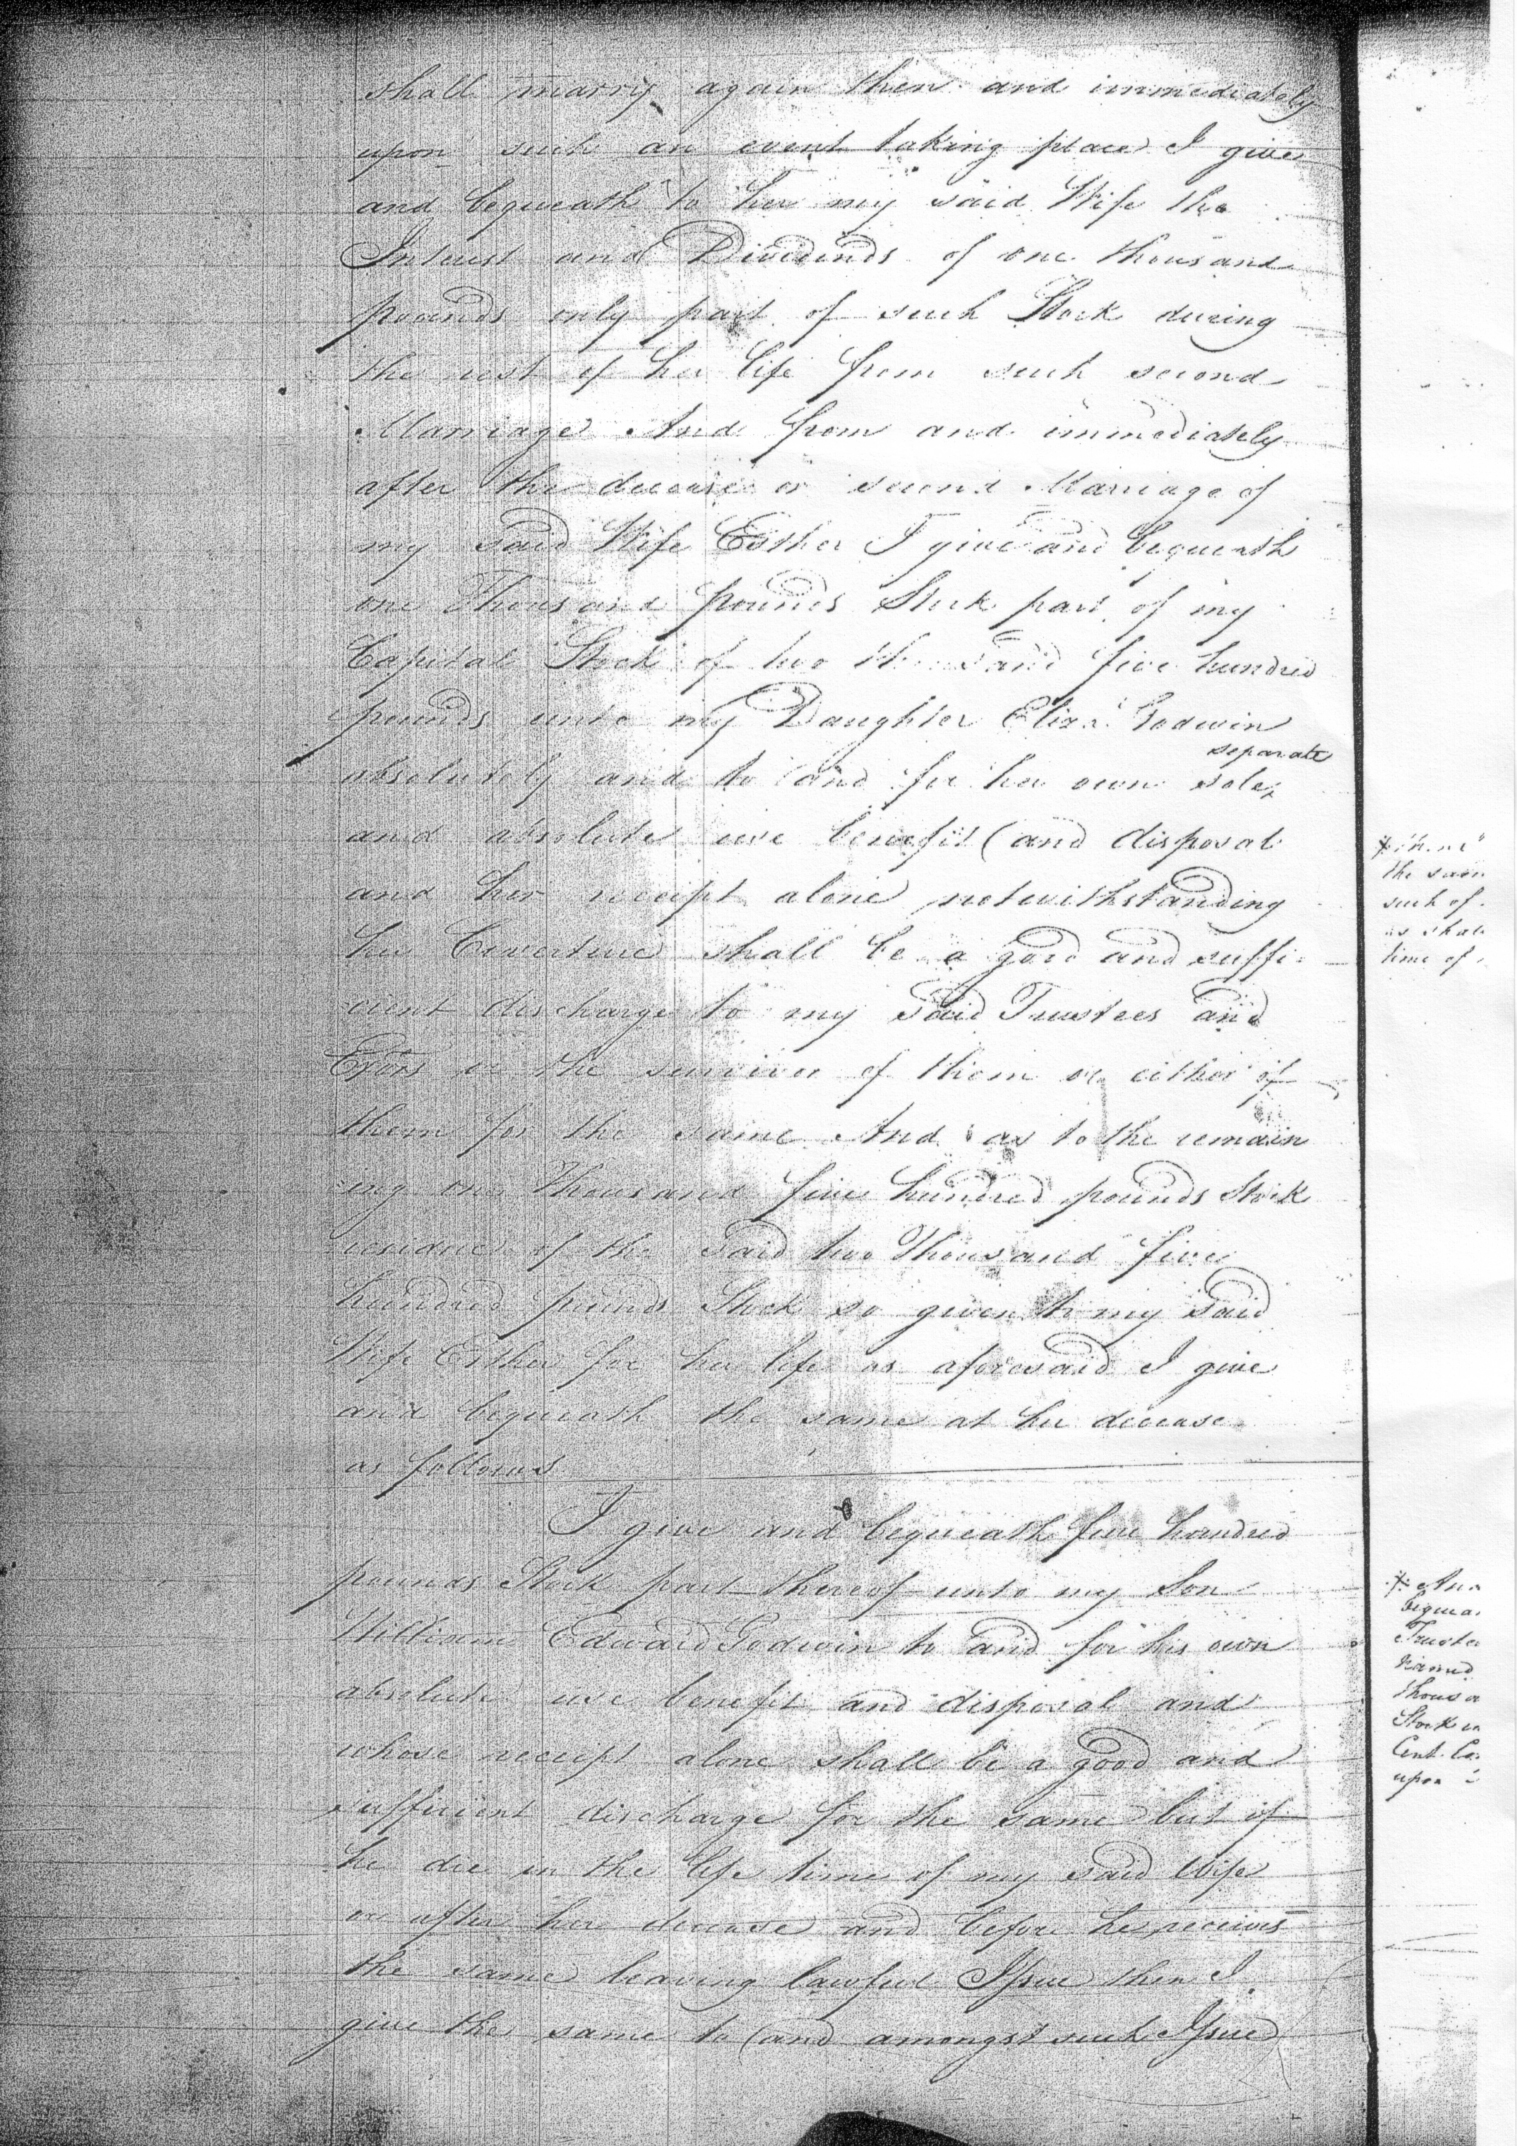 shall marry again then and immediately
upon such an event taking place I give
and bequeath to her my said Wife the
Interest and Dividends of one thousand
pounds only part of such Stock during
the rest of her life from such second
Marriage And from and immediately
after the decease or second Marriage of
my said Wife Esther I give and bequeath
one Thousand pounds Stock part of my
Capital Stock of two thousand five hundred
pounds unto my Daughter Eliza Godwin
separate
absolutely and to and for her own sole,
and absolute use benefit and disposal
and her receipt alone notwithstanding
her Coverture shall be a good and suffi-
cient discharge to my said Trustees and
Exors or the survivor of them or either of
them for the same And as to the remain
ing one Thousand five hundred pounds Stock
residue of the said two Thousand five
hundred pounds Stock so given to my said
Wife Esther for her life as aforesaid I give
and bequeath the same at her decease
as follows
I give and bequeath five hundred
pounds Stock part thereof unto my Son
William Edward Godwin to and for his own
absolute use benefit and disposal and
whose receipt alone shall be a good and
sufficient discharge for the same but if
he die in the life time of my said Wife
or after her decease and before he receives
the same leaving lawful Issue then I
give the same to and amongst such Issue
the sam
such of
as shal
time of
Beque
Truste
named
thousa
Stock in
Cent. Co
upon